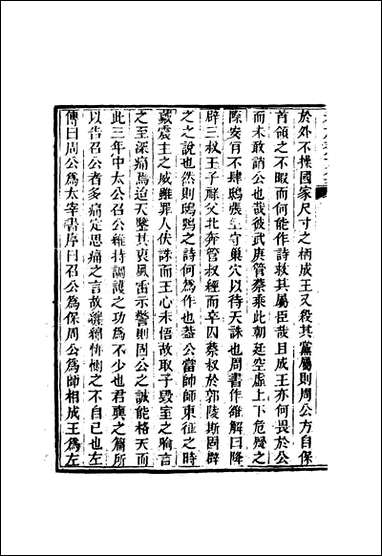 於外不操國家尺寸之柄成王又殺其黨屬則周公方自保
首領之不暇而何能作詩救其屬臣哉且成王亦何畏於公
而未敢誚公也哉彼武庚管蔡乘此朝廷空虛上下危疑之
際安有不肆鴟張坐守巢穴以待天誅也周書作雒解曰降
辟三叔王子祿父北奔管叔經而卒囚蔡叔於郭陵斯固辟
之之說也然則鴟鴞之詩何爲作也蓋公當帥師東征之時
藏震主之威雖罪人伏誅而王心未悟故取子毀室之喻言
之至深痛焉迨天鑒其衷風雷示警則固公之誠能格天而
此三年中太公召公維持調護之功爲不少也君奭之篇所
以告召公者多痛定思痛之言故纏綿悱惻之不自已也左
傳曰周公爲太宰書序曰召公爲保周公爲師相成王爲左